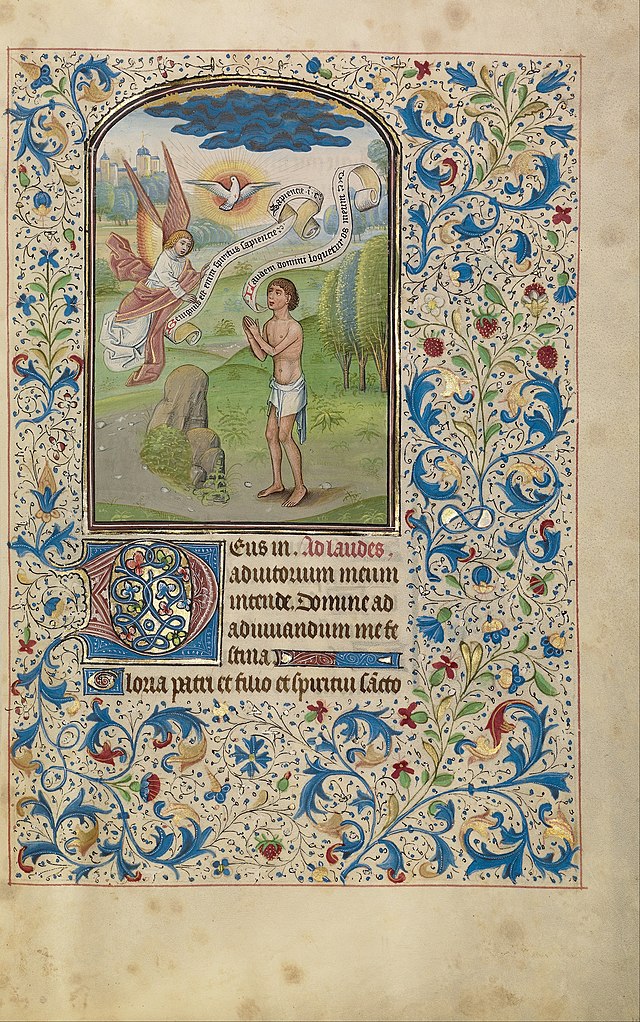 Benignus est enim spiritus sapiencie
Sapiencie . i .
Laudem domini loquetur os meum
DEus in . Ad laudes .
adiutorium meum
intende . Domine ad
adiuuandum me fe
stina
Gloria patri et filio et spiritui sācto